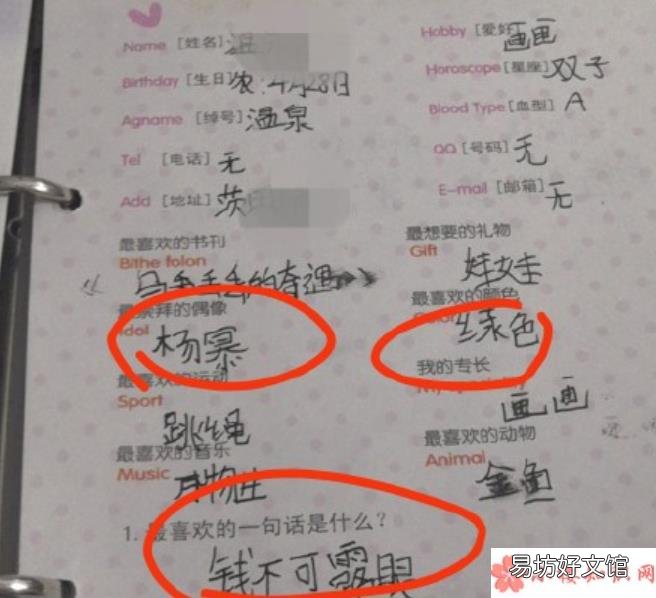 Name [姓名] 温
Hobby [爱好] 画画
Birthday [生日] 农:4月28日
Horoscope [星座] 双子
Agname [绰号] 温泉
Blood Type [血型] A
Tel [电话] 无
QQ [号码] 无
Add [地址] 茨
E-mail [邮箱] 无
最喜欢的书刊
Bithe folon
最想要的礼物
Gift
娃娃
最崇拜的偶像
Idol
杨幂
最喜欢的颜色
绿色
最喜欢的运动
Sport
跳绳
我的专长
画画
最喜欢的音乐
Music
最喜欢的动物
Animal
金鱼
1. 最喜欢的一句话是什么?
钱不可露眼
易坊好文馆